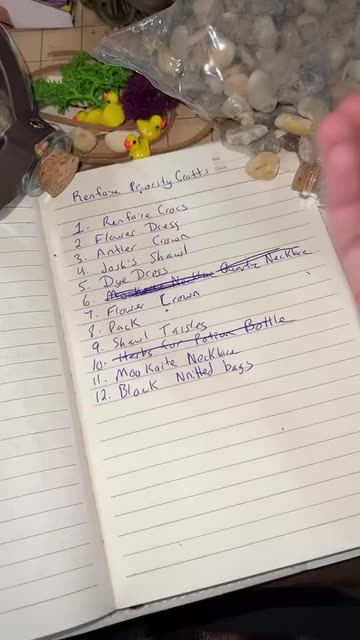 Renfaire Priority Crafts
No.
Date
1. Renfaire Crocs
2 Flower Dress
3. Antler Crown
4. Josh's Shawl
5. Dye Dress
6. Mookaite Necklace Quartz Necklace
7. Flower Crown
8. Pack
9. Shawl Tassles
10. Herbs for Potion Bottle
11. Mookaite Necklace
12. Black Nnitted bags